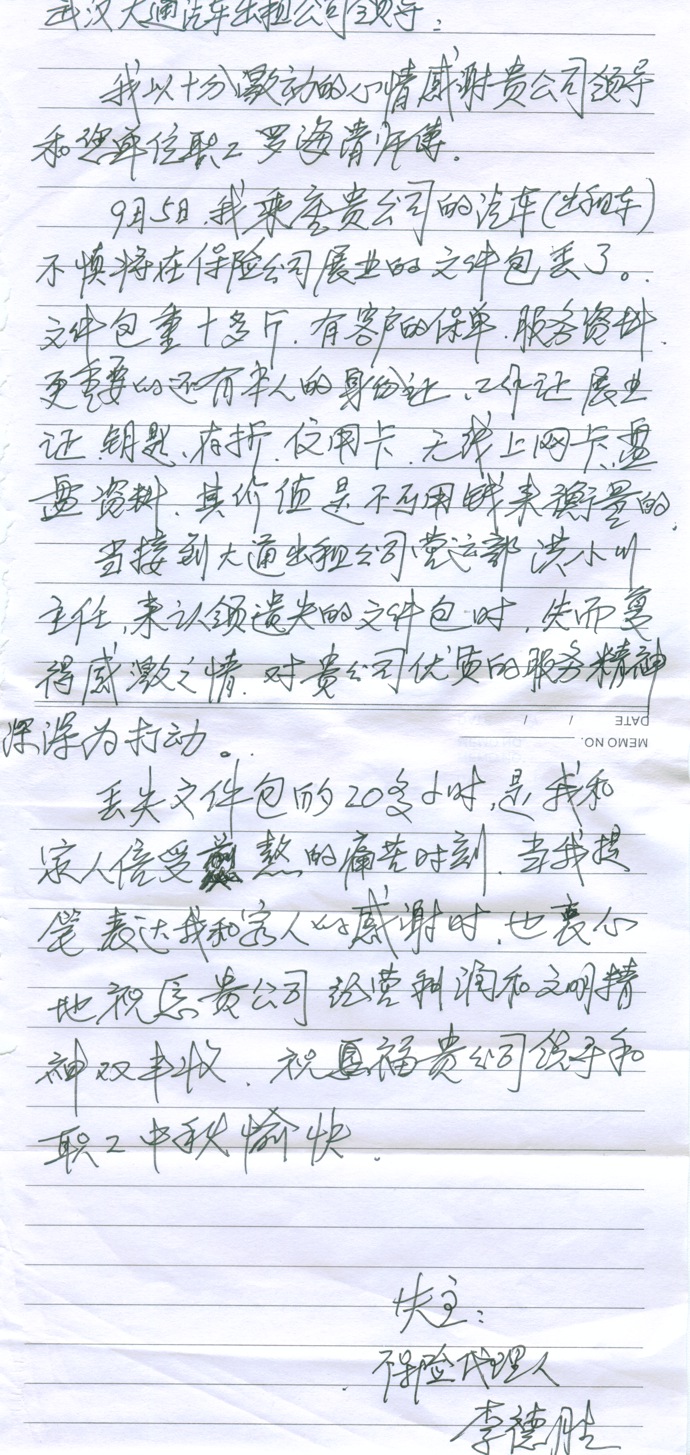 武汉大通汽车出租公司领导：
我以十分激动的心情感谢贵公司领导
和您单位职工罗海清师傅。
9月5日，我乘座贵公司的汽车(出租车)
不慎将在保险公司展业的文件包丢了。
文件包重十多斤，有客户的保单、服务资料，
更重要的还有本人的身份证、工作证展业
证、钥匙、存折、信用卡、无线上网卡、盘
盘资料，其价值是不可用钱来衡量的，
当接到大通出租公司营运部洪小川
主任，来认领遗失的文件包时，失而复
得感激之情，对贵公司优质的服务精神
深深为打动。
DATE / /
MEMO NO.
丢失文件包的20多小时，是我和
家人倍受煎熬的痛苦时刻，当我提
笔表达我和家人的感谢时，也衷心
地祝愿贵公司经营利润和文明精
神双丰收，祝愿福贵公司领导和
职工中秋愉快．
失主：
保险代理人
李德胜